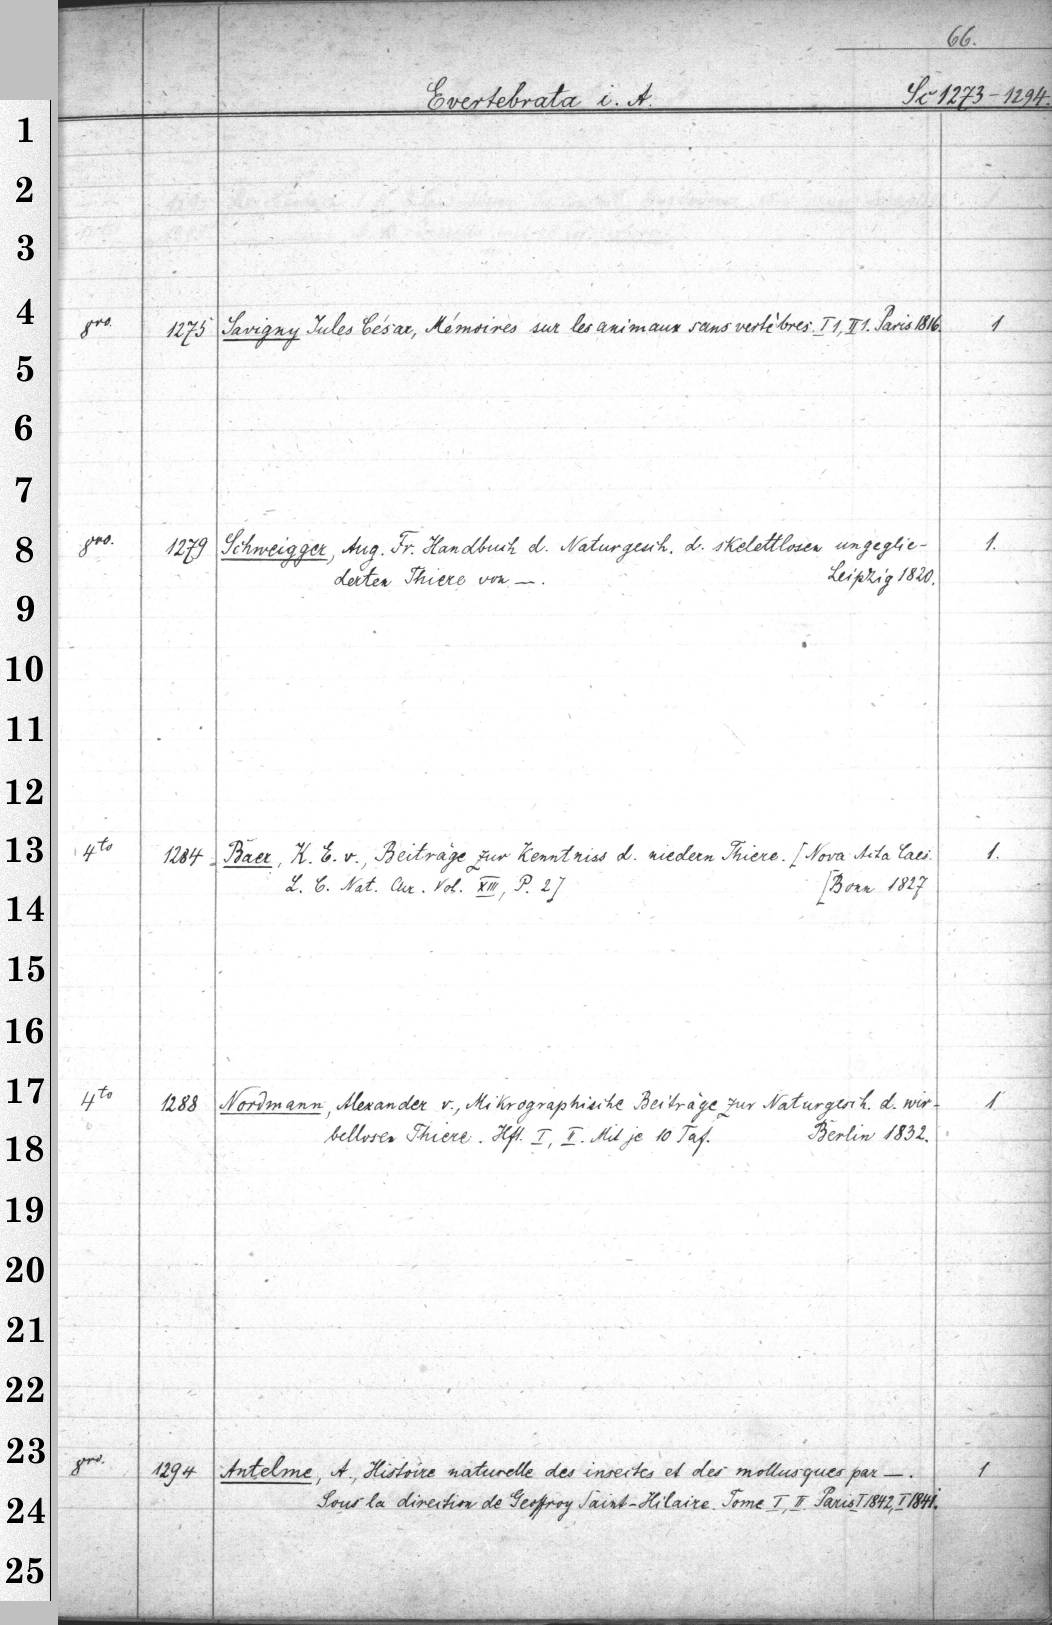 66.
Evertebrata i. A. Sc 1273-1294.
1
2
3
4
8vo. 1275 Savigny Jules César, Mémoires sur les animaux sans vertèbres. I 1, II 1. Paris 1816. 1
5
6
7
8
8vo. 1279 Schweigger, Aug. Fr. Handbuch d. Naturgesch. d. skelettlosen ungeglie- 1.
derten Thiere von —. Leipzig 1820.
9
10
11
12
13
4to 1284 Baer, K. E. v., Beiträge zur Kenntniss d. niedern Thiere. [Nova Acta Caes. 1.
L. C. Nat. Cur. Vol. XIII, P. 2] [Bonn 1827
14
15
16
17
4to 1288 Nordmann, Alexander v., Mikrographische Beiträge zur Naturgesch. d. wir- 1
bellosen Thiere. Hft. I, II. Mit je 10 Taf. Berlin 1832.
18
19
20
21
22
23
8vo. 1294 Antelme, A., Histoire naturelle des insectes et des mollusques par —. 1
Sous la direction de Geoffroy Saint-Hilaire. Tome I, II Paris I 1842, I 1841.
24
25